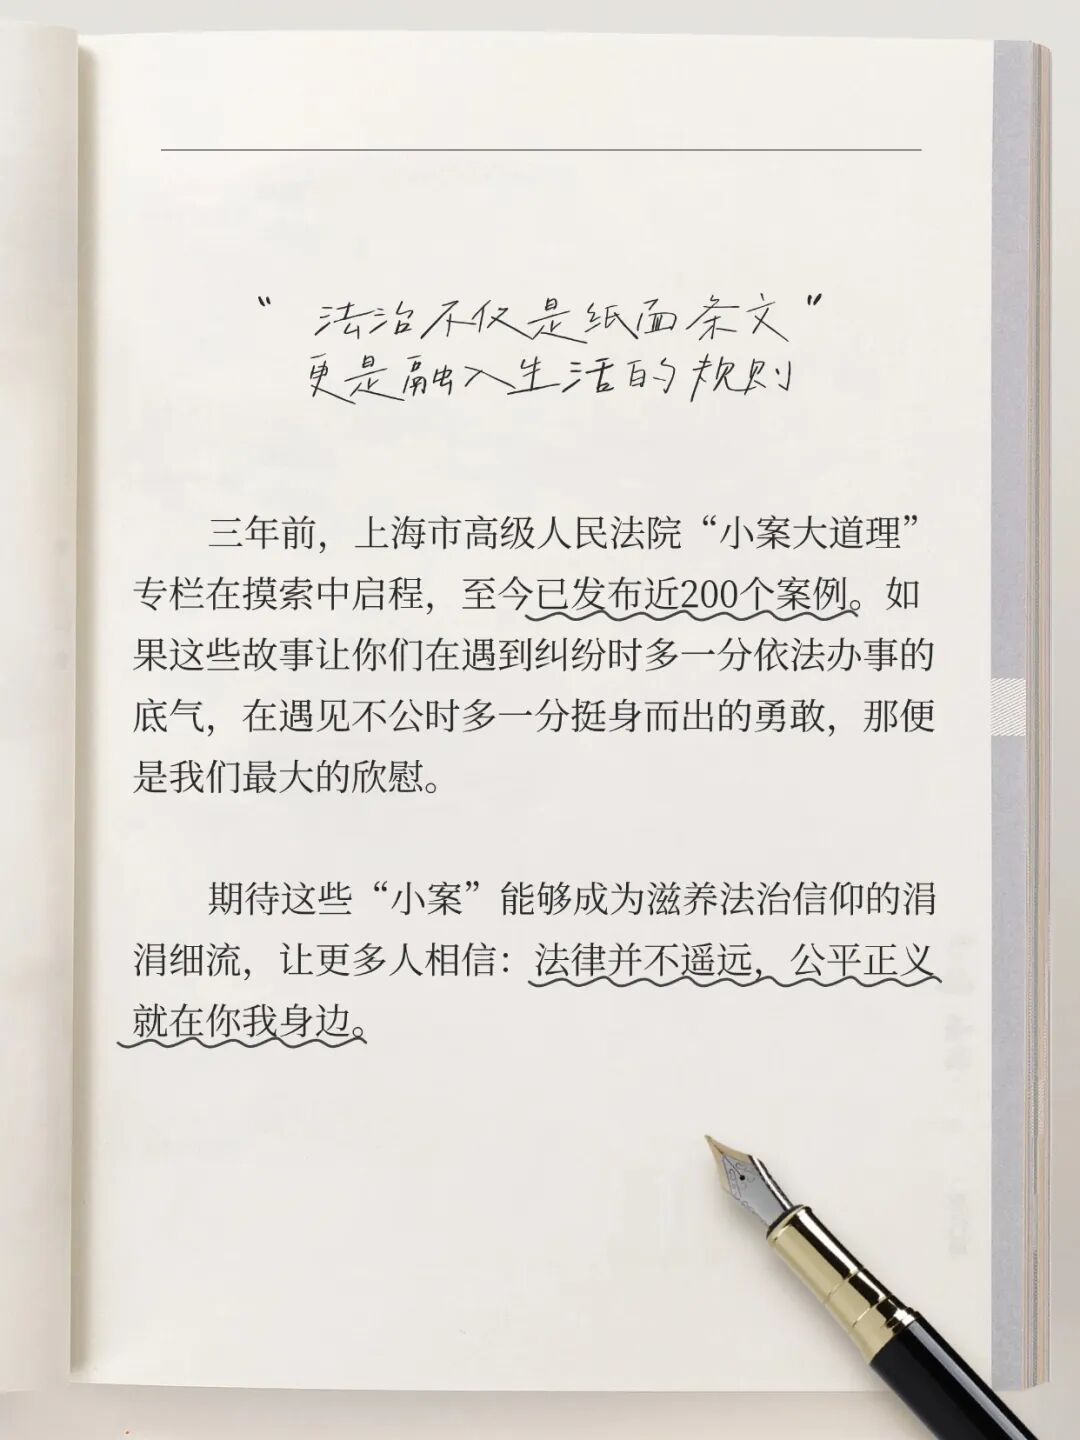 “法治不仅是纸面条文”
更是融入生活的规则
三年前，上海市高级人民法院“小案大道理”
专栏在摸索中启程，至今已发布近200个案例。如
果这些故事让你们在遇到纠纷时多一分依法办事的
底气，在遇见不公时多一分挺身而出的勇敢，那便
是我们最大的欣慰。
期待这些“小案”能够成为滋养法治信仰的涓
涓细流，让更多人相信：法律并不遥远，公平正义
就在你我身边。